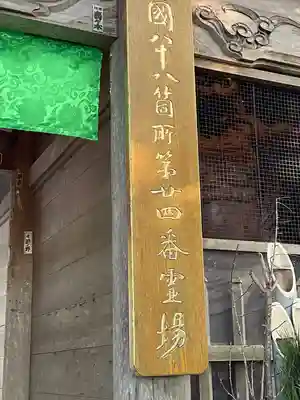 國八十八箇所第廿四番霊場